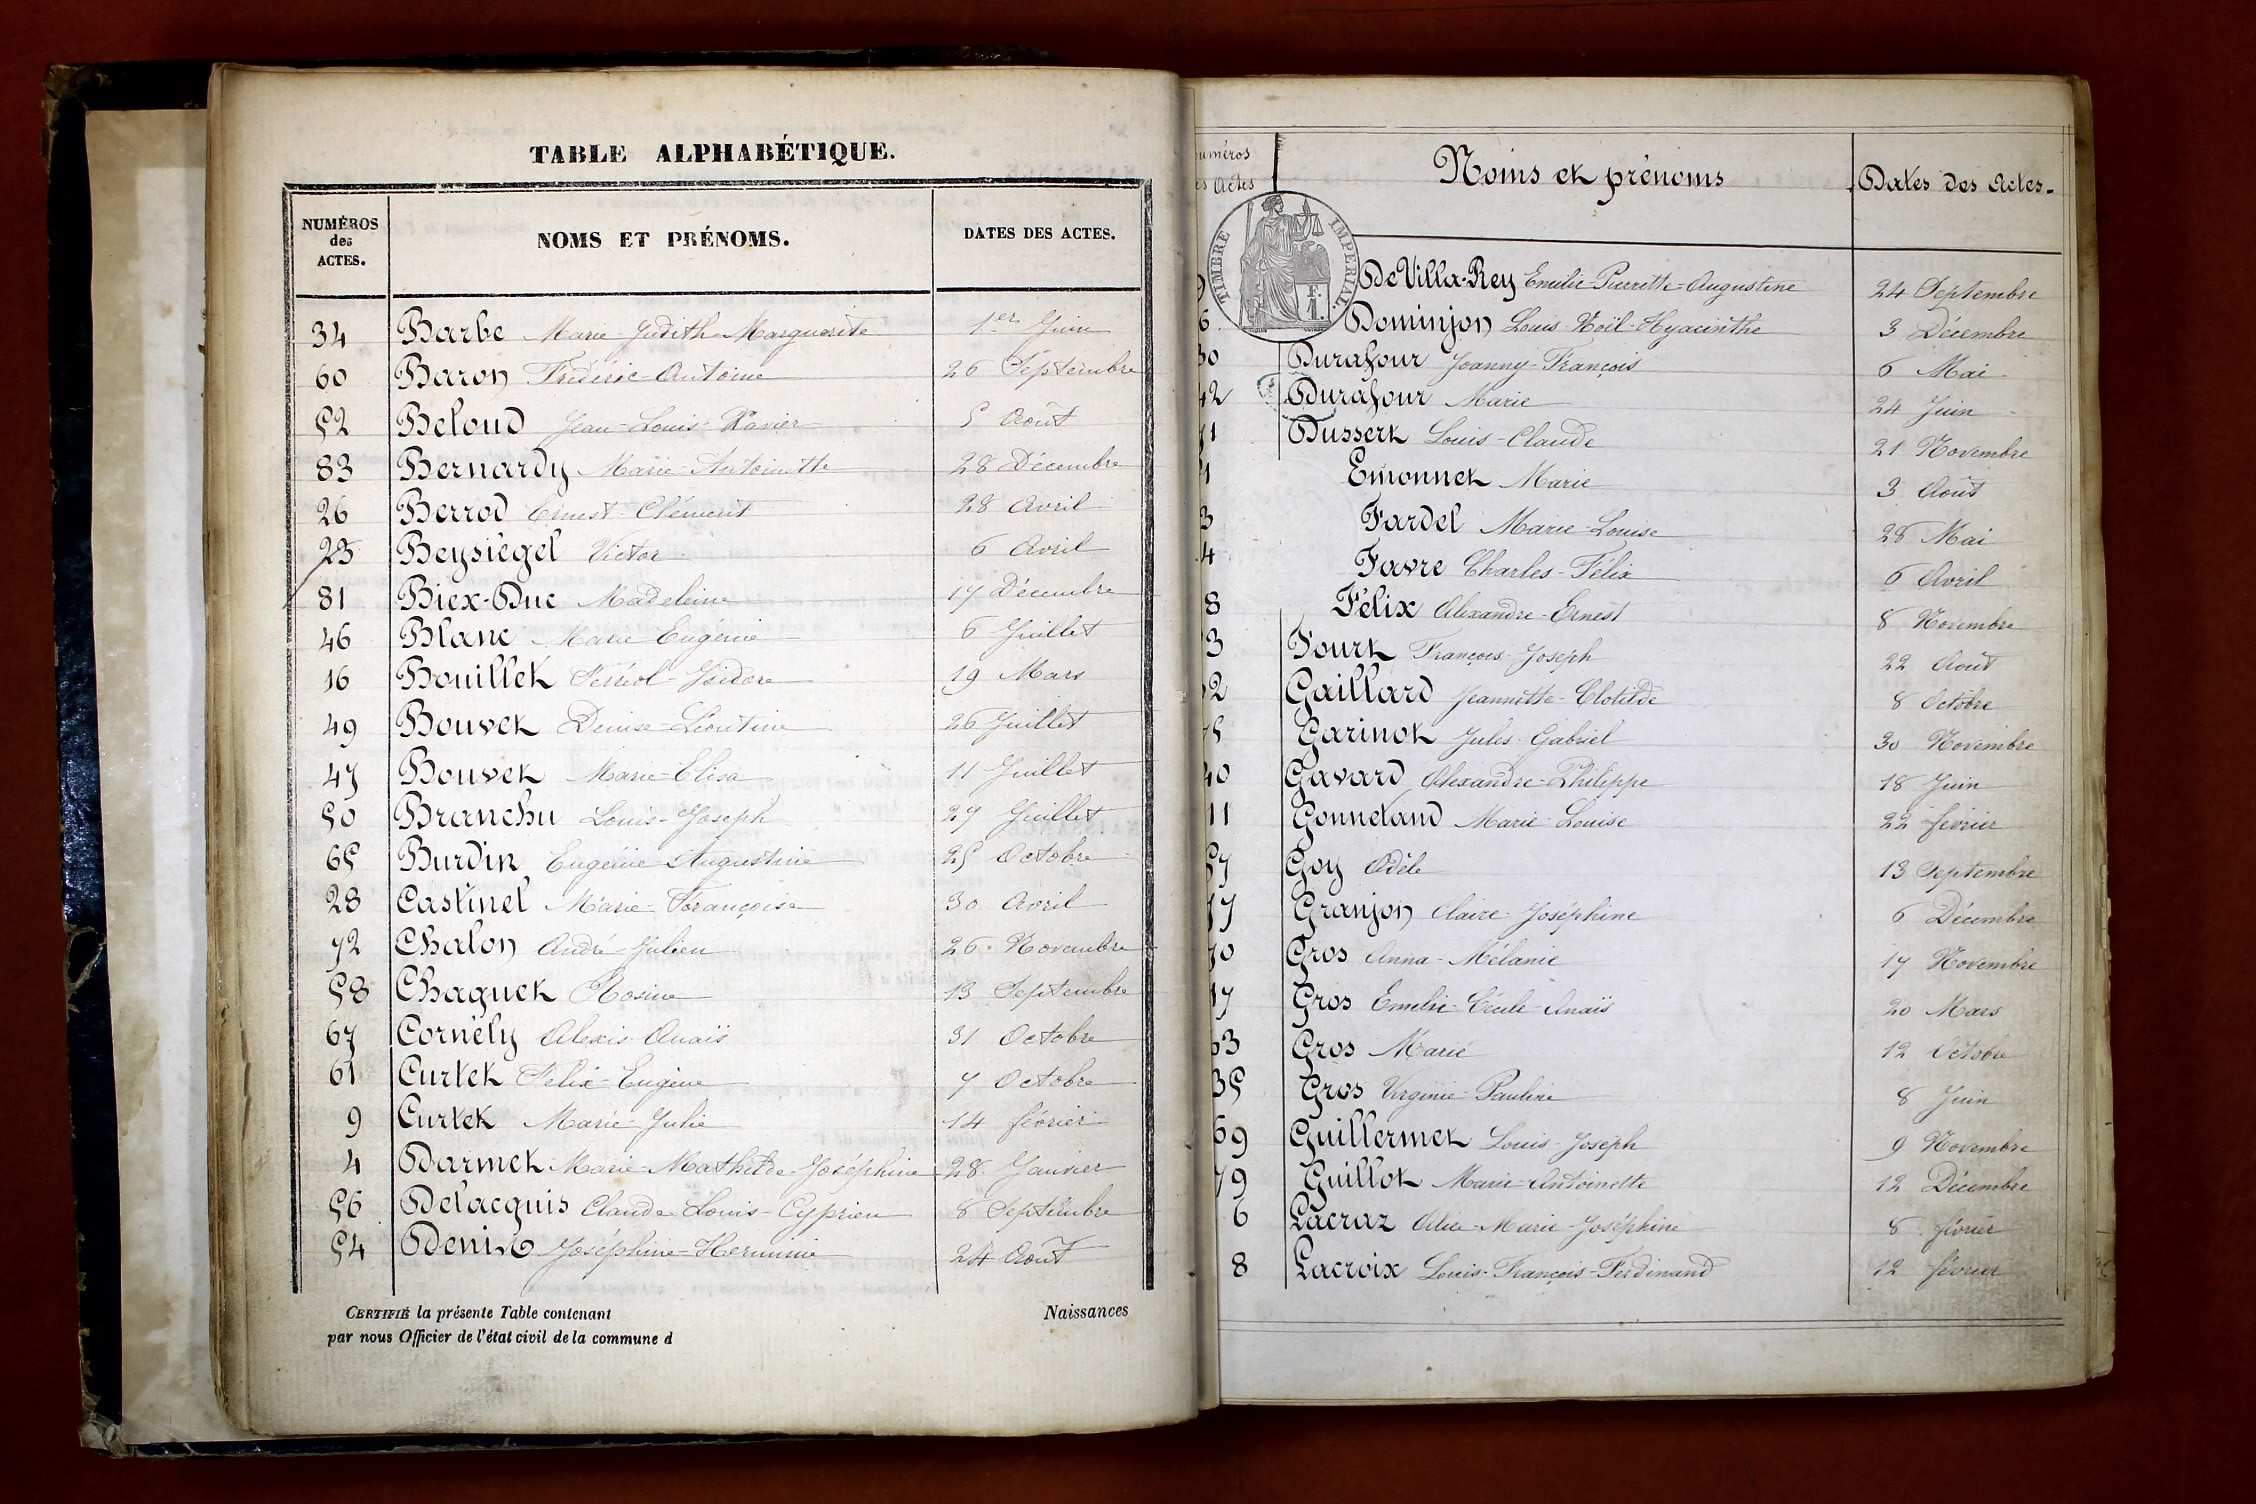 TABLE ALPHABÉTIQUE.
NUMÉROS des ACTES. NOMS ET PRÉNOMS. DATES DES ACTES.
34 Barbe Marie-Judith-Marguerite 1er Juin
60 Baron Frédéric-Antoine 26 Septembre
52 Beloud Jean-Louis-Xavier 5 Août
83 Bernardy Marie-Antoinette 28 Décembre
26 Berrod Ernest-Clément 28 Avril
23 Beysiégel Victor 6 Avril
81 Biex-Duc Madeleine 17 Décembre
46 Blanc Marie Eugénie 6 Juillet
16 Bouillet Ferréol-Isidore 19 Mars
49 Bouvet Denise-Léontine 26 Juillet
47 Bouvet Marie-Elisa 11 Juillet
50 Branchu Louis-Joseph 27 Juillet
65 Burdin Eugénie-Augustine 25 Octobre
28 Castinel Marie-Françoise 30 Avril
72 Chalon André-Julien 26 Novembre
58 Chaguet Rosine 13 Septembre
67 Cornély Alexis-Anaïs 31 Octobre
61 Curtet Félix-Eugène 7 Octobre
9 Curtet Marie-Julie 14 février
4 Darmet Marie-Mathilde-Joséphine 28 Janvier
56 Delacquis Claude-Louis-Cyprien 8 Septembre
54 Denis Joséphine-Herminie 24 Août
CERTIFIÉ la présente Table contenant Naissances
par nous Officier de l'état civil de la commune d
uméros
es Actes Noms et prénoms Dates des Actes.
TIMBRE IMPERIAL
De Villa-Rey Emilie-Pierrette-Augustine 24 Septembre
6 Dominjon Louis-Noël-Hyacinthe 3 Décembre
30 Durafour Joanny-François 6 Mai
42 Durafour Marie 24 Juin
71 Dussert Louis-Claude 21 Novembre
1 Emonnet Marie 3 Août
3 Fardel Marie-Louise 28 Mai
4 Favre Charles-Félix 6 Avril
8 Félix Alexandre-Ernest 8 Novembre
3 Fourt François-Joseph 22 Août
2 Gaillard Jeannette-Clotilde 8 Octobre
75 Garinot Jules-Gabriel 30 Novembre
40 Gavard Alexandre-Philippe 18 Juin
11 Gonnetand Marie-Louise 22 février
57 Goy Adèle 13 Septembre
77 Granjon Claire-Joséphine 6 Décembre
70 Gros Anna-Mélanie 17 Novembre
17 Gros Emélie-Cécile-Anaïs 20 Mars
63 Gros Marie 12 Octobre
35 Gros Virginie-Pauline 8 Juin
69 Guillermet Louis-Joseph 9 Novembre
79 Guillot Marie-Antoinette 12 Décembre
6 Lacraz Alice-Marie-Joséphine 8 février
8 Lacroix Louis-François-Ferdinand 12 février